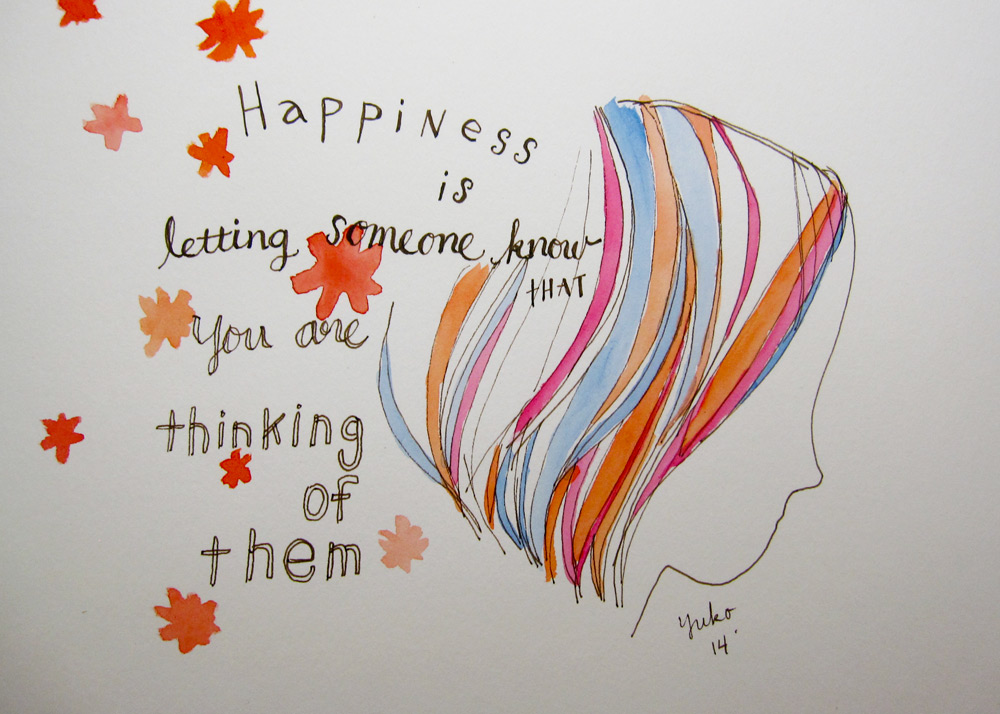 Happiness
is
letting someone know
THAT
You are
thinking
of
them
Yuko
14'